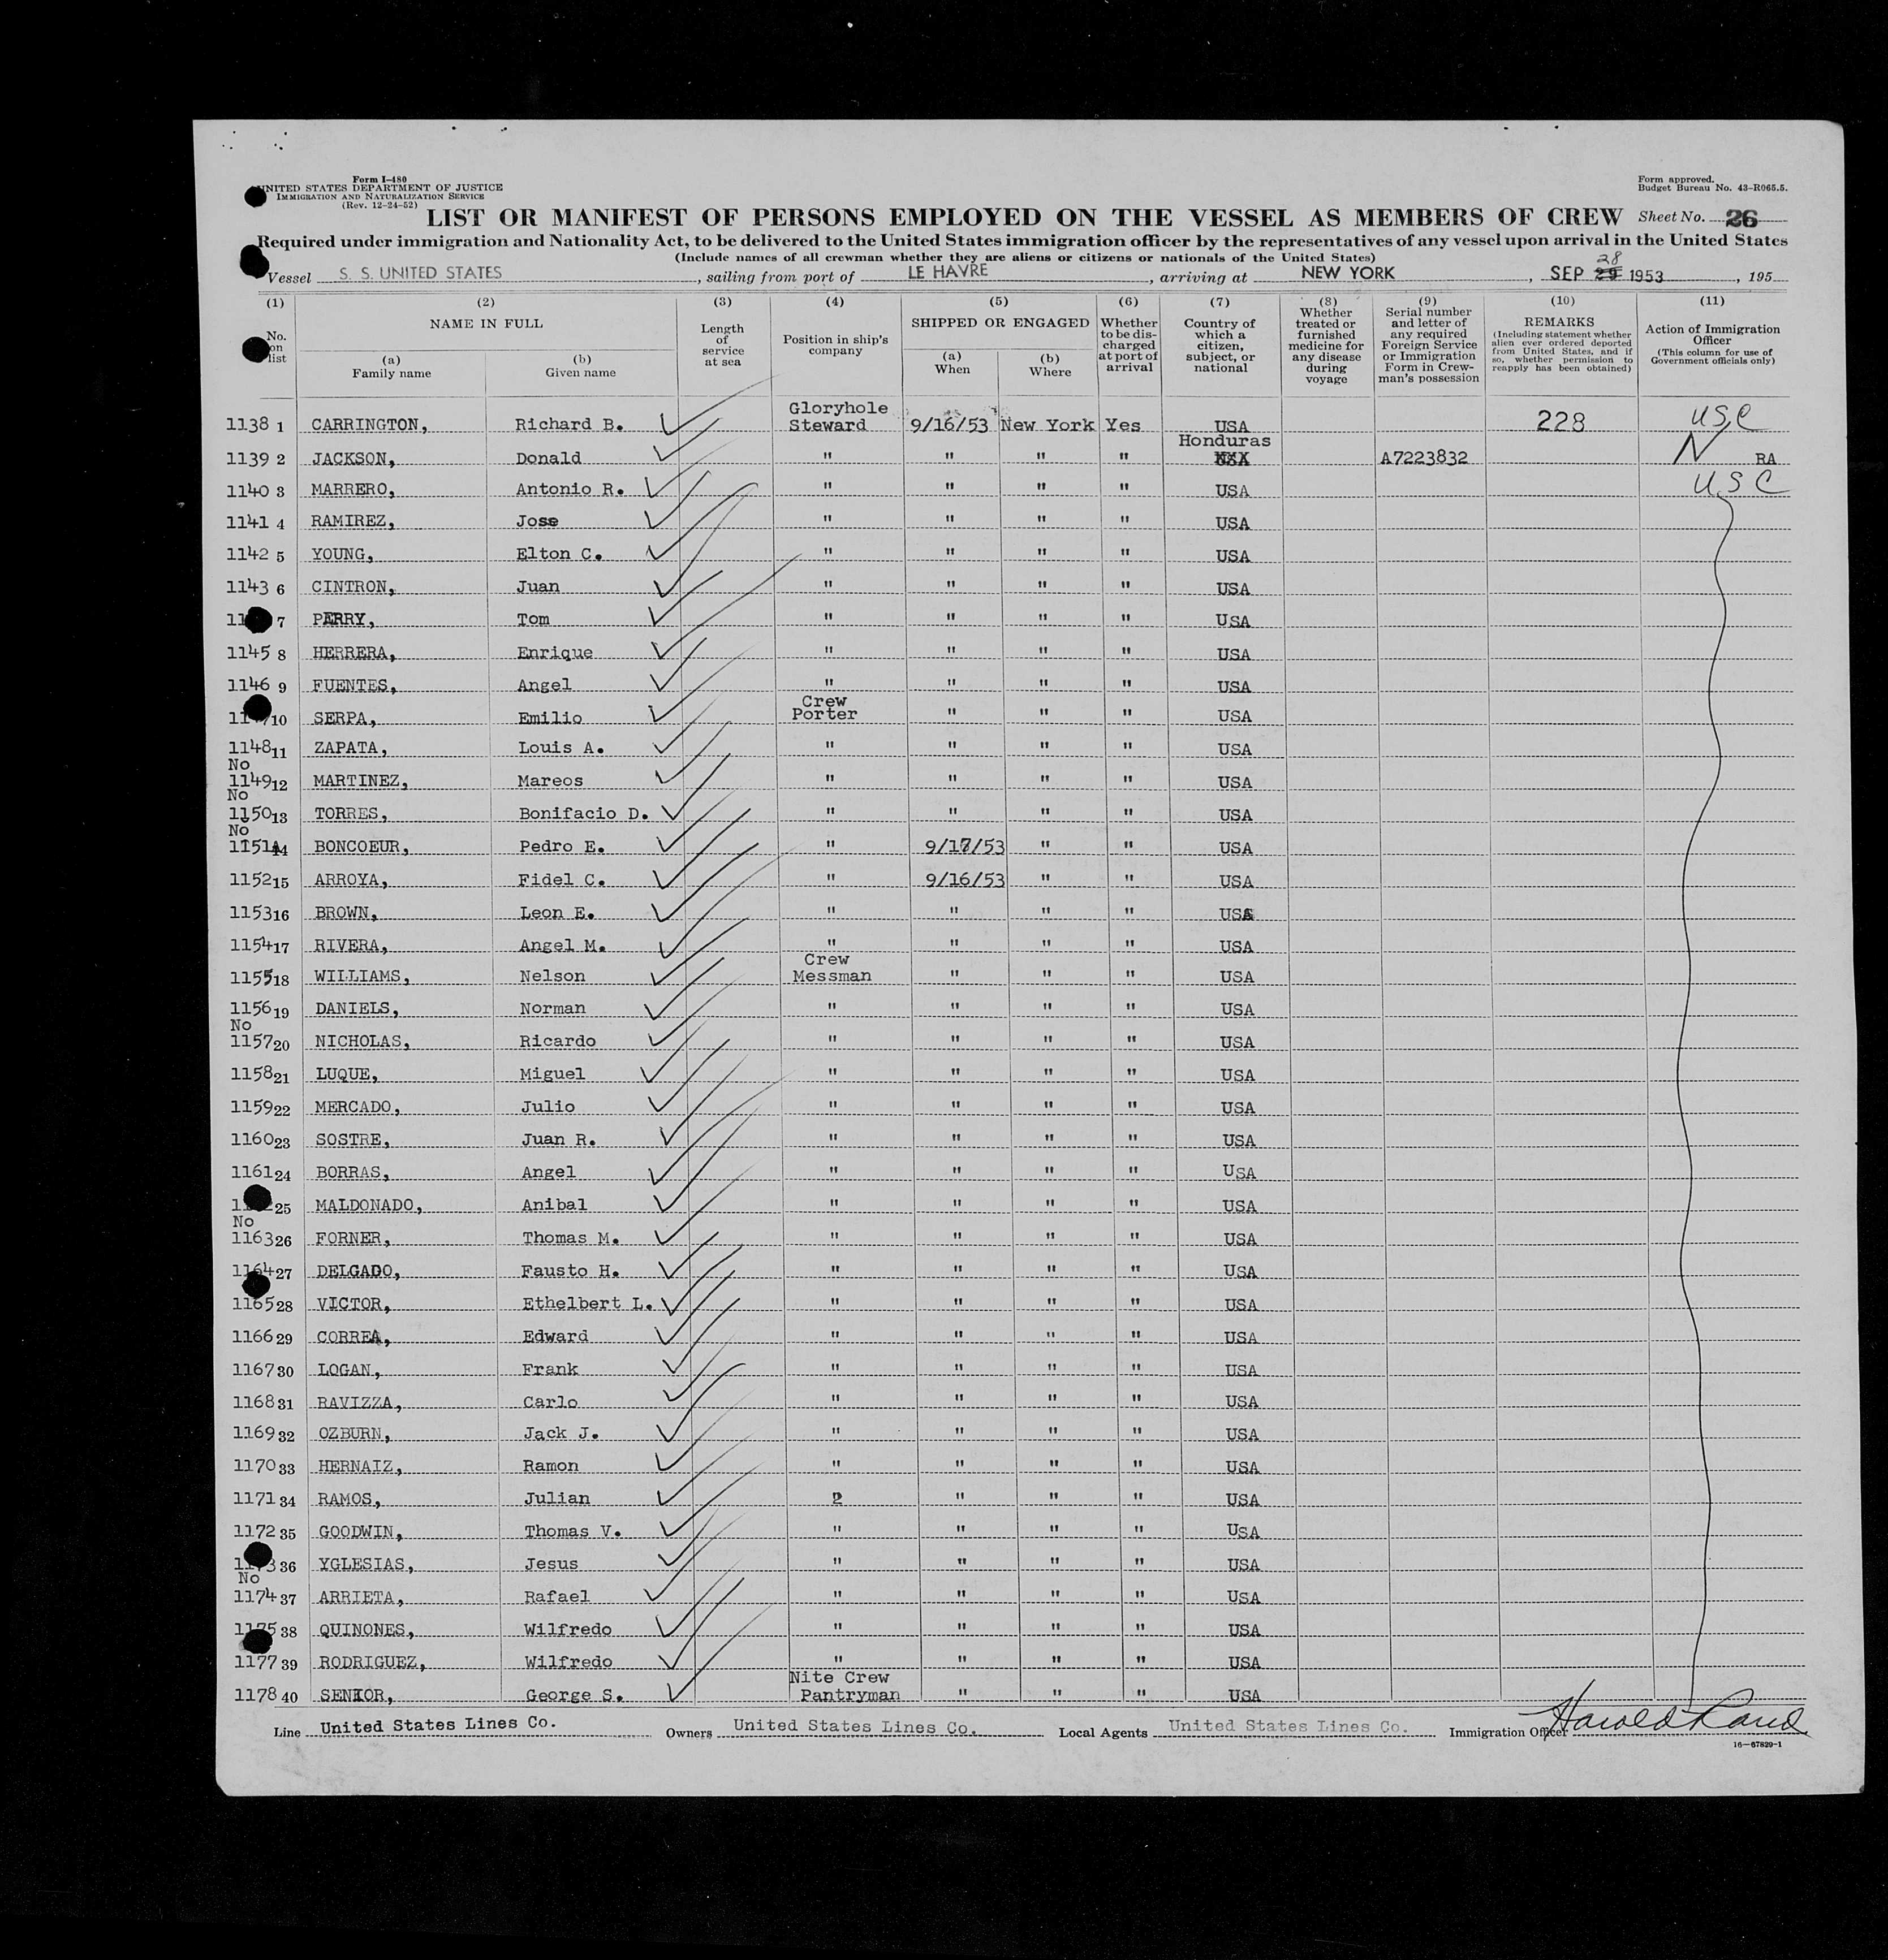 Form I-480
UNITED STATES DEPARTMENT OF JUSTICE
IMMIGRATION AND NATURALIZATION SERVICE
(Rev. 12-24-52)
Form approved.
Budget Bureau No. 43-R065.5.
LIST OR MANIFEST OF PERSONS EMPLOYED ON THE VESSEL AS MEMBERS OF CREW Sheet No. 26
Required under immigration and Nationality Act, to be delivered to the United States immigration officer by the representatives of any vessel upon arrival in the United States
(Include names of all crewman whether they are aliens or citizens or nationals of the United States)
28
Vessel S. S. UNITED STATES, sailing from port of LE HAVRE, arriving at NEW YORK, SEP 29 1953, 195
(1) (2) (3) (4) (5) (6) (7) (8) (9) (10) (11)
No. on list
NAME IN FULL
(a) Family name
(b) Given name
Length of service at sea
Position in ship's company
SHIPPED OR ENGAGED
(a) When
(b) Where
Whether to be discharged at port of arrival
Country of which a citizen, subject, or national
Whether treated or furnished medicine for any disease during voyage
Serial number and letter of any required Foreign Service or Immigration Form in Crewman's possession
REMARKS
(Including statement whether alien ever ordered deported from United States, and if so, whether permission to reapply has been obtained)
Action of Immigration Officer
(This column for use of Government officials only)
1138 1 CARRINGTON, Richard B. Gloryhole Steward 9/16/53 New York Yes USA 228 USC
1139 2 JACKSON, Donald " " " " Honduras A7223832 N RA
1140 3 MARRERO, Antonio R. " " " " USA USC
1141 4 RAMIREZ, Jose " " " " USA
1142 5 YOUNG, Elton C. " " " " USA
1143 6 CINTRON, Juan " " " " USA
7 PERRY, Tom " " " " USA
1145 8 HERRERA, Enrique " " " " USA
1146 9 FUENTES, Angel " " " " USA
10 SERPA, Emilio Crew Porter " " " USA
1148 11 ZAPATA, Louis A. " " " " USA
No
1149 12 MARTINEZ, Mareos " " " " USA
No
1150 13 TORRES, Bonifacio D. " " " " USA
No
1151 14 BONCOEUR, Pedro E. " 9/17/53 " " USA
1152 15 ARROYA, Fidel C. " 9/16/53 " " USA
1153 16 BROWN, Leon E. " " " " USA
1154 17 RIVERA, Angel M. " " " " USA
1155 18 WILLIAMS, Nelson Crew Messman " " " USA
1156 19 DANIELS, Norman " " " " USA
No
1157 20 NICHOLAS, Ricardo " " " " USA
1158 21 LUQUE, Miguel " " " " USA
1159 22 MERCADO, Julio " " " " USA
1160 23 SOSTRE, Juan R. " " " " USA
1161 24 BORRAS, Angel " " " " USA
25 MALDONADO, Anibal " " " " USA
No
1163 26 FORNER, Thomas M. " " " " USA
1164 27 DELGADO, Fausto H. " " " " USA
1165 28 VICTOR, Ethelbert L. " " " " USA
1166 29 CORREA, Edward " " " " USA
1167 30 LOGAN, Frank " " " " USA
1168 31 RAVIZZA, Carlo " " " " USA
1169 32 OZBURN, Jack J. " " " " USA
1170 33 HERNAIZ, Ramon " " " " USA
1171 34 RAMOS, Julian 2 " " " USA
1172 35 GOODWIN, Thomas V. " " " " USA
36 YGLESIAS, Jesus " " " " USA
No
1174 37 ARRIETA, Rafael " " " " USA
1175 38 QUINONES, Wilfredo " " " " USA
1177 39 RODRIGUEZ, Wilfredo " " " " USA
1178 40 SENIOR, George S. Nite Crew Pantryman " " " USA
Line United States Lines Co. Owners United States Lines Co. Local Agents United States Lines Co. Immigration Officer Harold Rand
16—67829-1